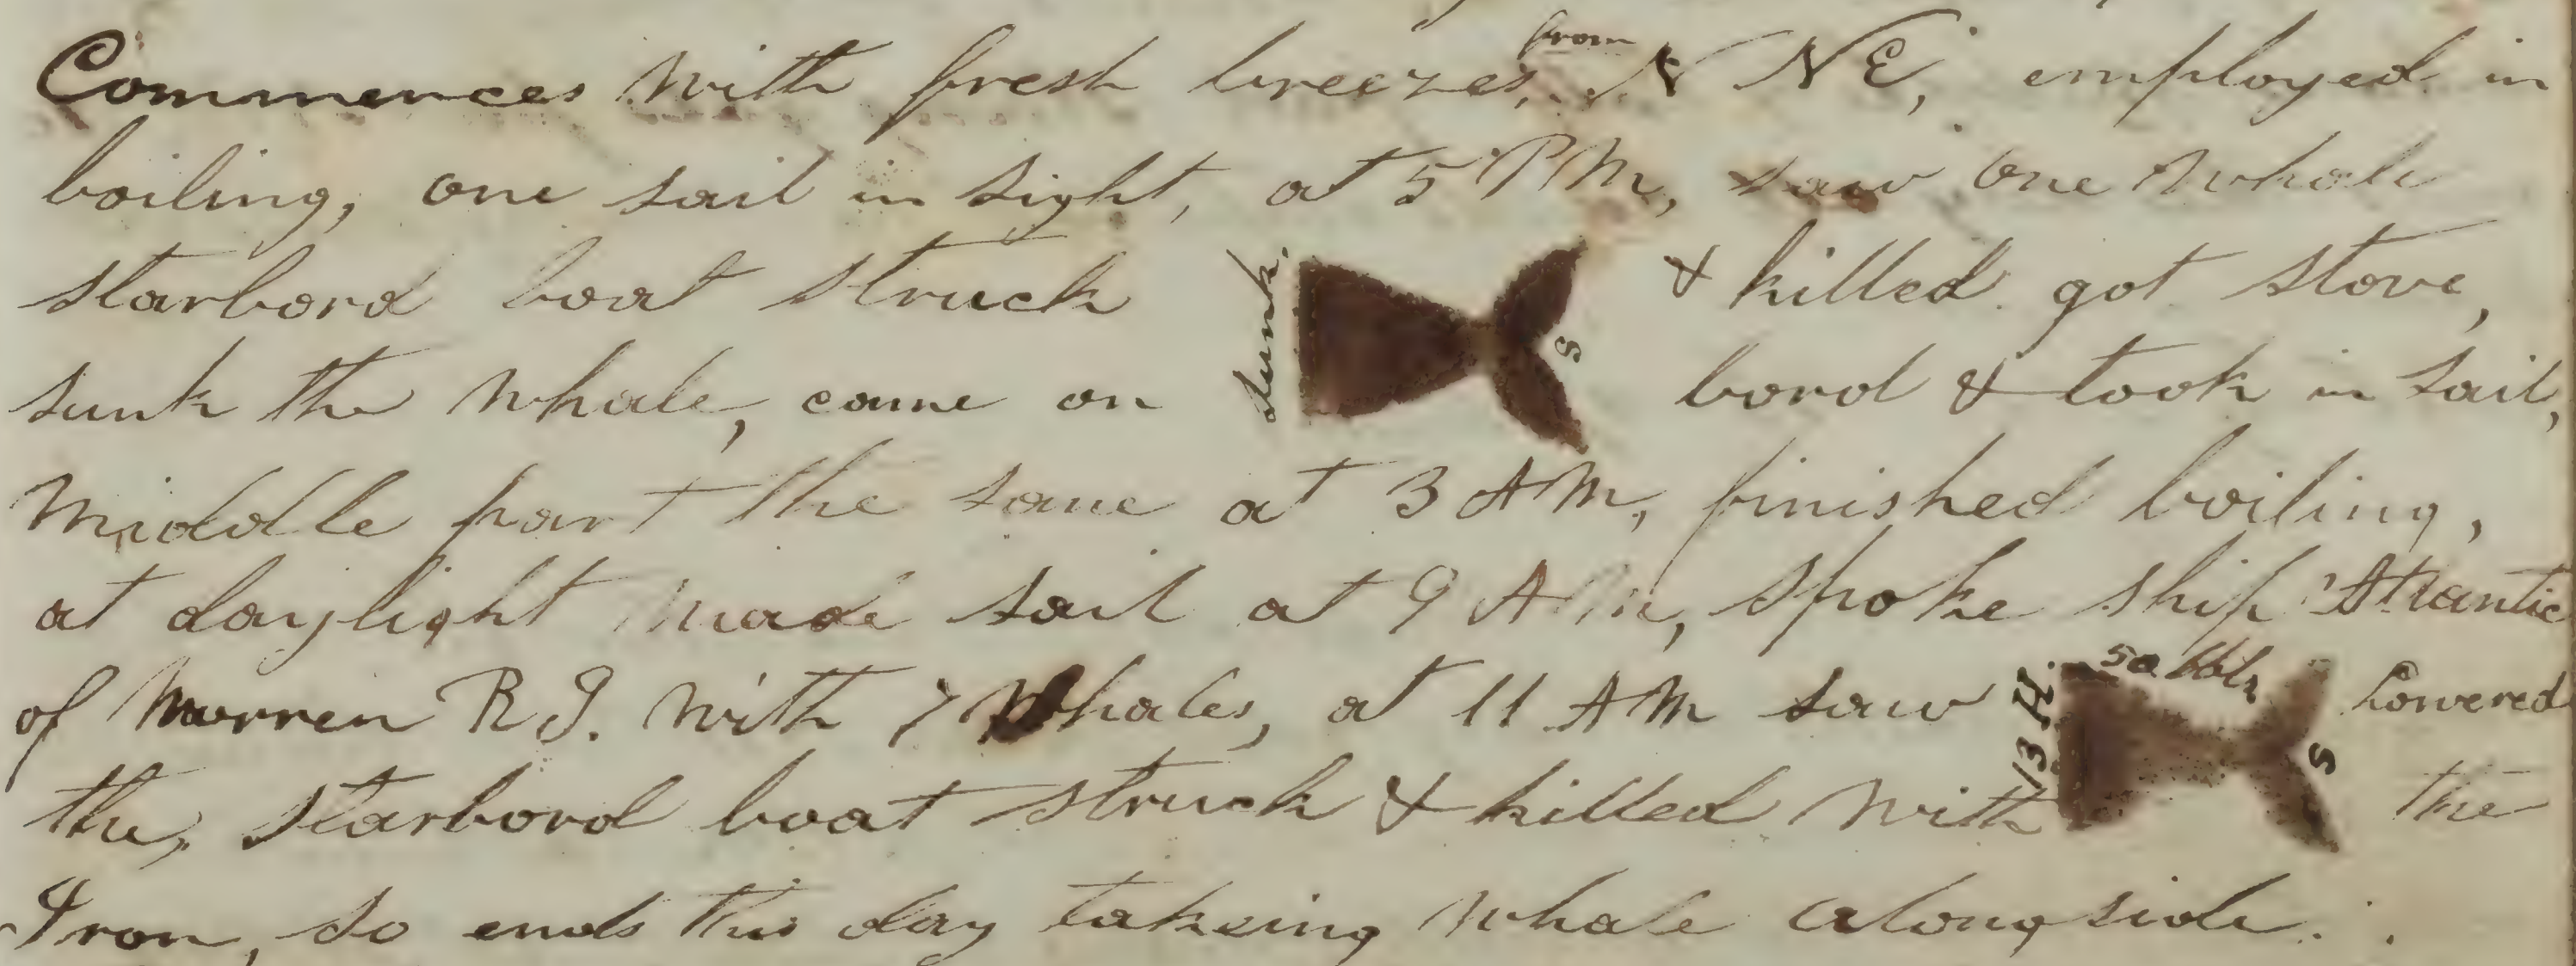 Commences with fresh breezes, from N NE, employed in
boiling, one sail in sight, at 5 PM, saw one whale
starbord boat struck & killed got stove,
sunk.
S
sunk the whale, came on bord & took in sail,
Middle part the same at 3 AM, finished boiling,
at daylight made sail at 9 AM, spoke ship Atlantic
of Warren R I. with 7 Whales, at 11 AM saw Lowered
50 bbls
13 H.
S
the, starbord boat struck & killed with the
Iron, so ends this day takeing whale alongside.